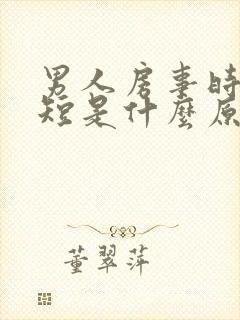 男人房事时
短是什麼原
董翠萍